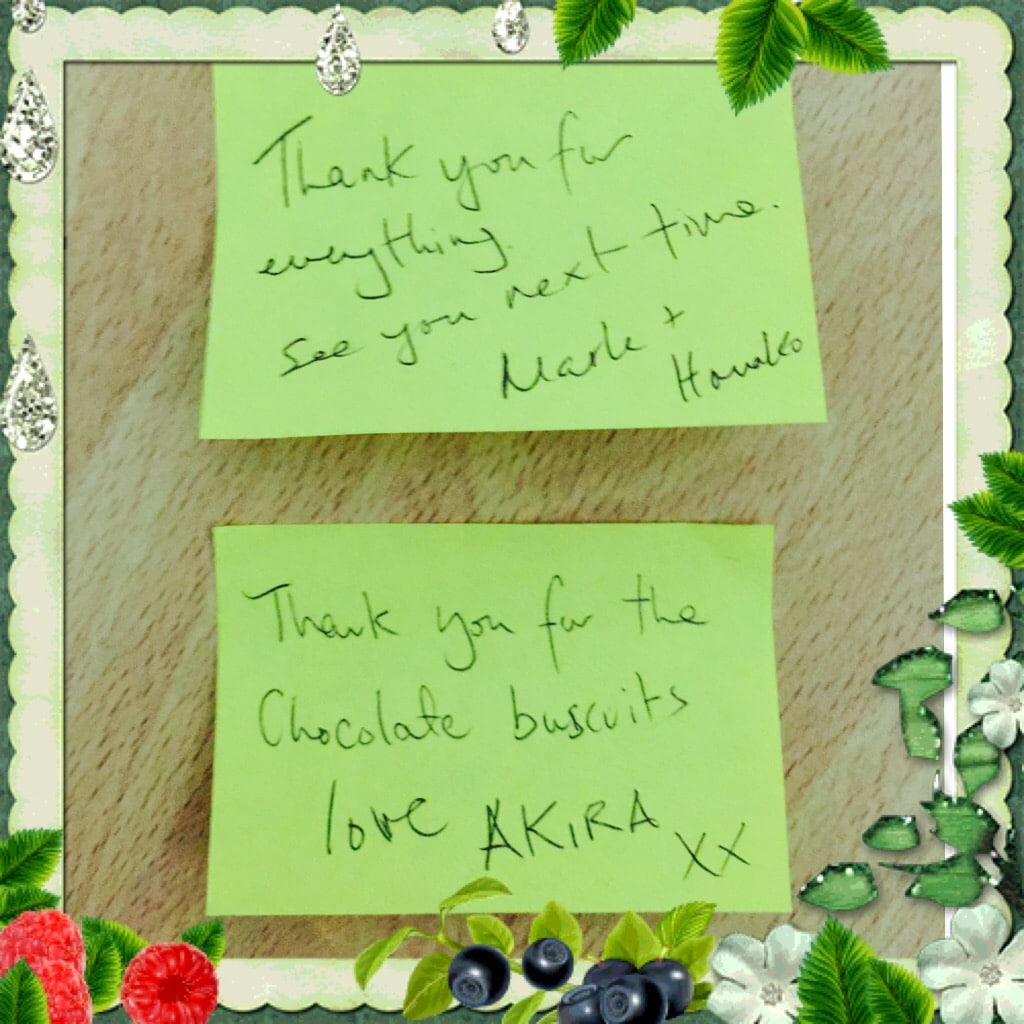 Thank you for
everything.
See you next time.
Mark +
Hanako
Thank you for the
Chocolate buscuits
love AKIRA
xx